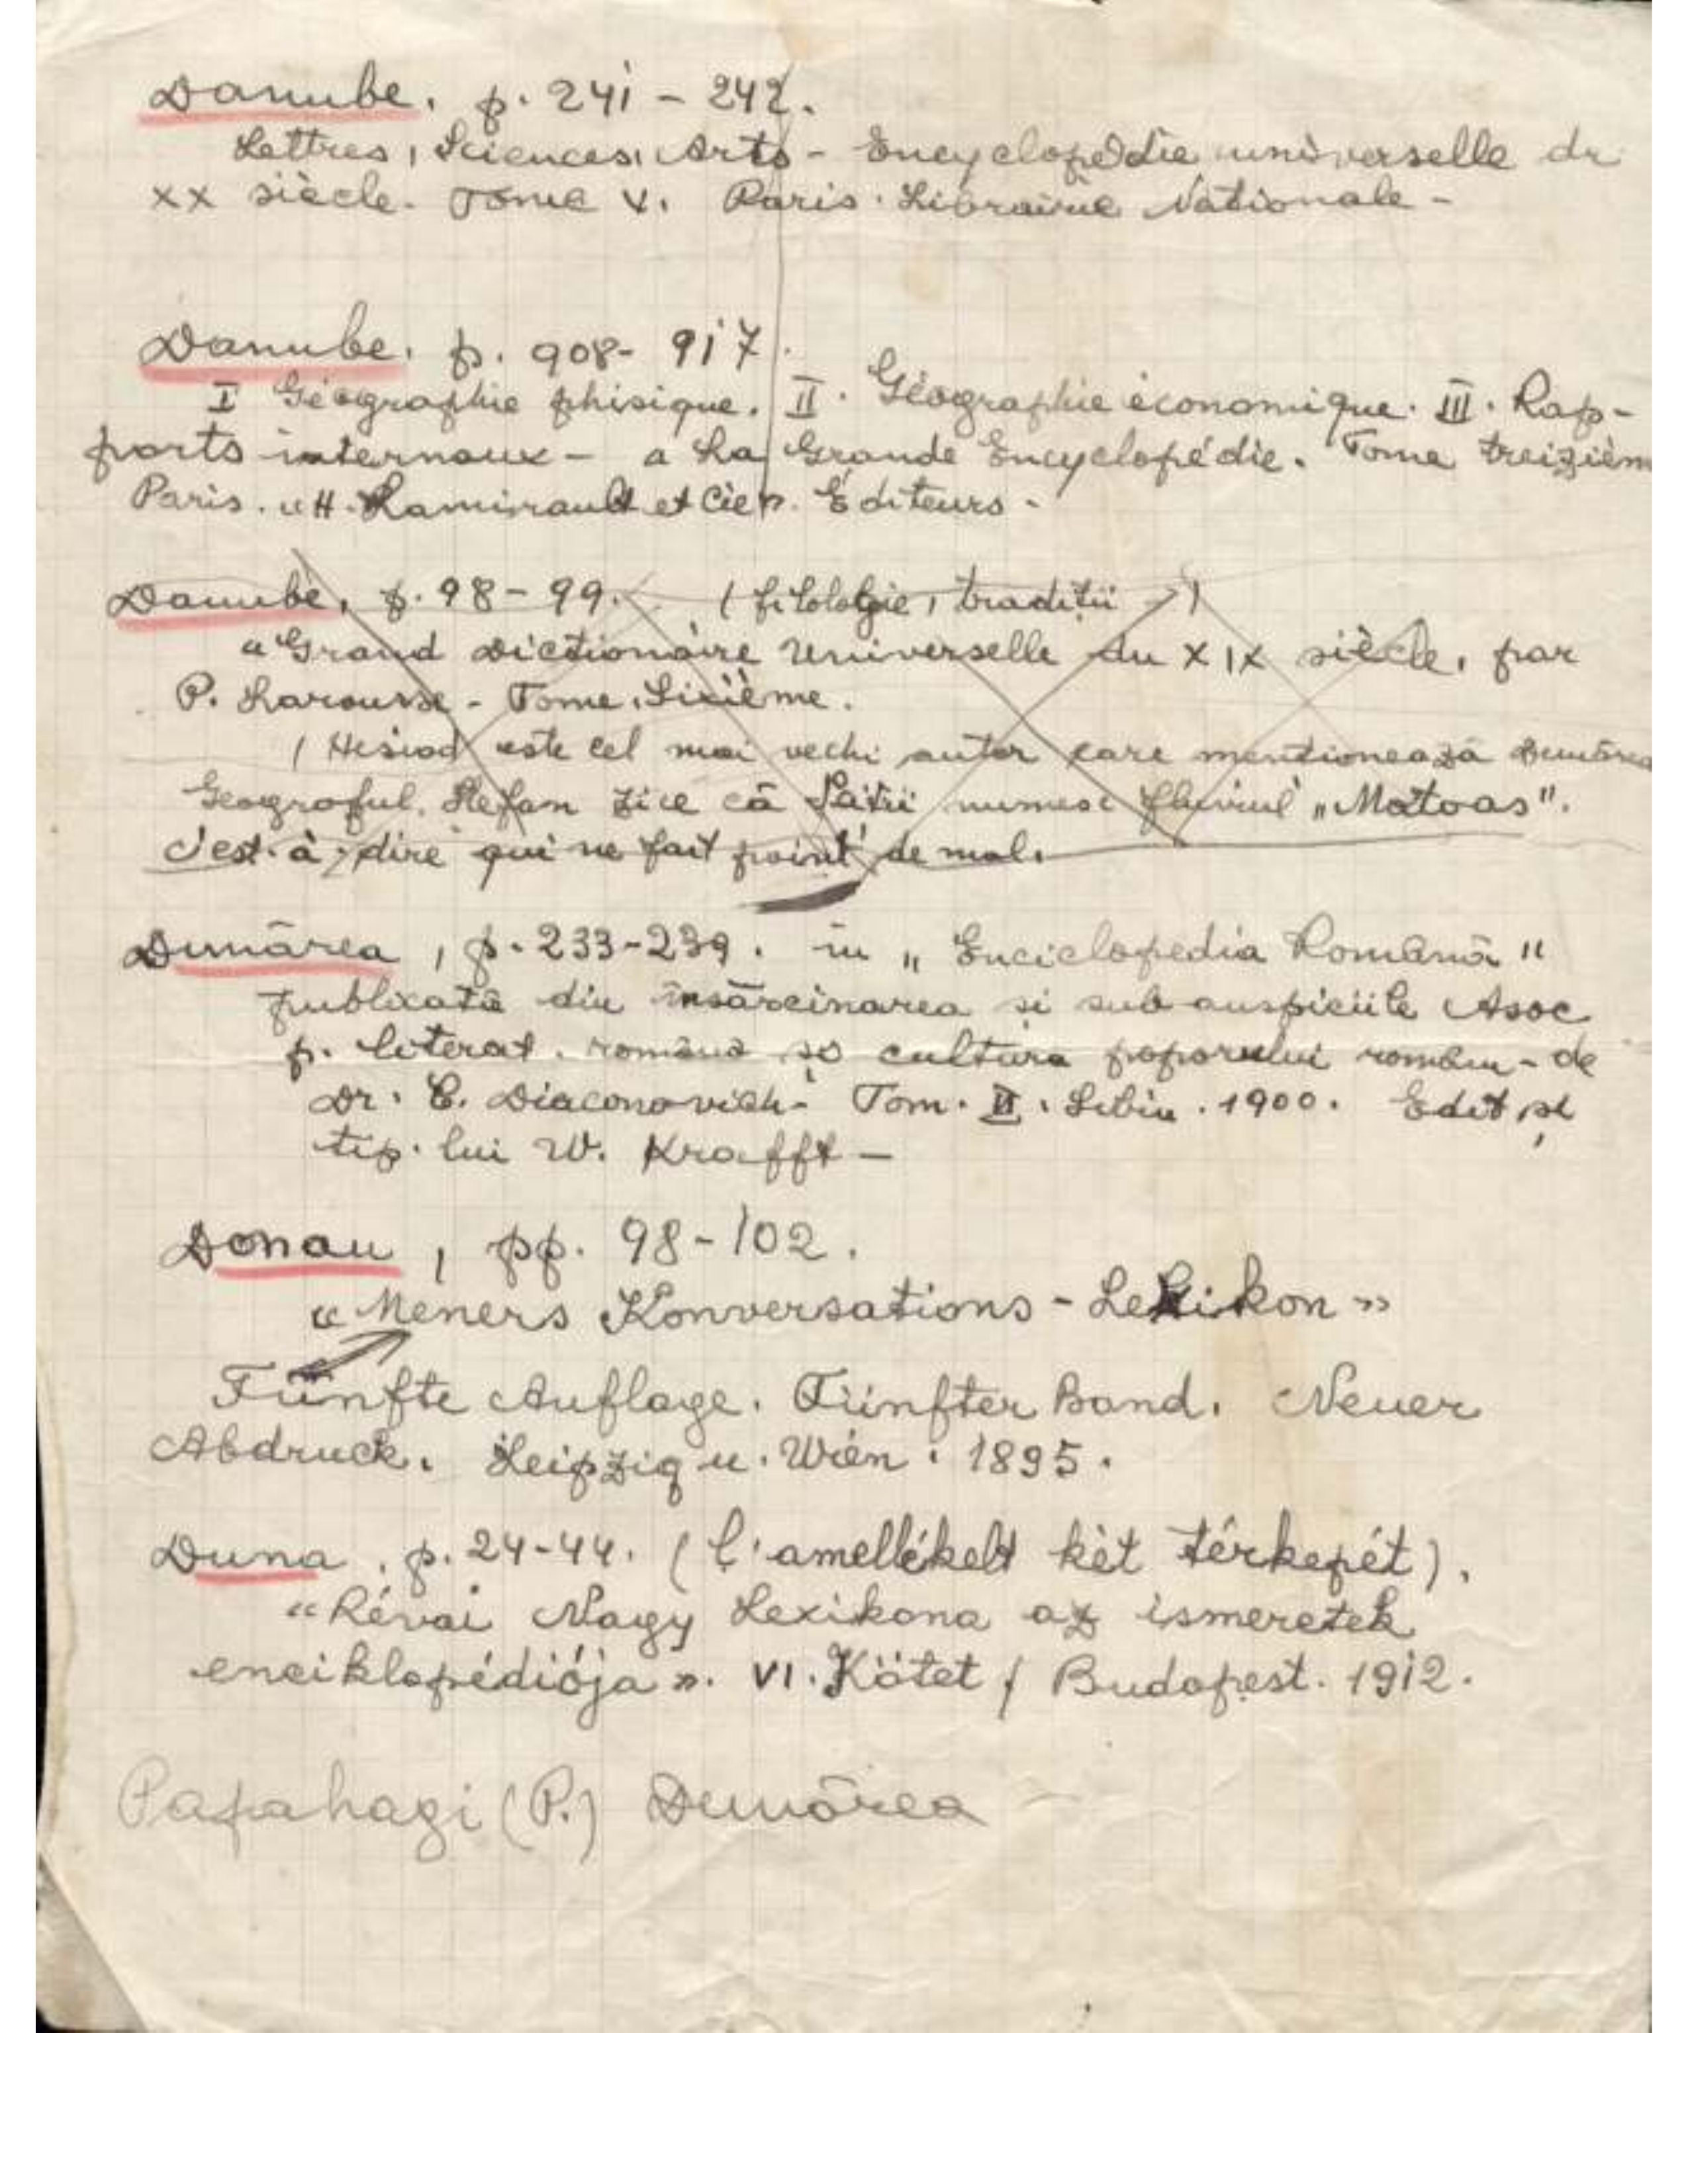 Danube. p. 241 - 242.
Lettres, Sciences, Arts - Encyclopédie universelle du
XX siècle. Tome V. Paris. Librairie Nationale -
Danube. p. 908 - 917.
I Géographie phisique. II. Géographie économique. III. Rap-
ports internaux - a La Grande Encyclopédie. Tome treizièm
Paris. "H. Lamirault et Cie". Éditeurs -
Danube, p. 98 - 99. (filologie, tradiții)
"Grand Dictionaire Universelle du XIX siècle, par
P. Larousse - Tome Sixième.
(Hesiod este cel mai vechi autor care mentionează Dunărea
Geograful Stefan zice că numesc fluviul „Matoas".
c'est-à-dire qui ne fait point de mal.
Dunărea, p. 233-239. in „Enciclopedia Română"
publicată din însărcinarea si sub auspiciile Asoc
p. literat. română și cultura poporului român - de
Dr. C. Diaconovich - Tom. II. Sibiu. 1900. Edit și
tip. lui W. Krafft -
Donau, pp. 98 - 102.
«Meners Konversations - Lexikon»
Fünfte Auflage. Fünfter Band. Neuer
Abdruck. Leipzig u. Wien. 1895.
Duna, p. 24-44. (L'amellékelt két térkepét).
"Révai Nagy Lexikona az ismeretek
enciklopédiója". VI. Kötet / Budapest. 1912.
Papahagi (P.) Dunărea